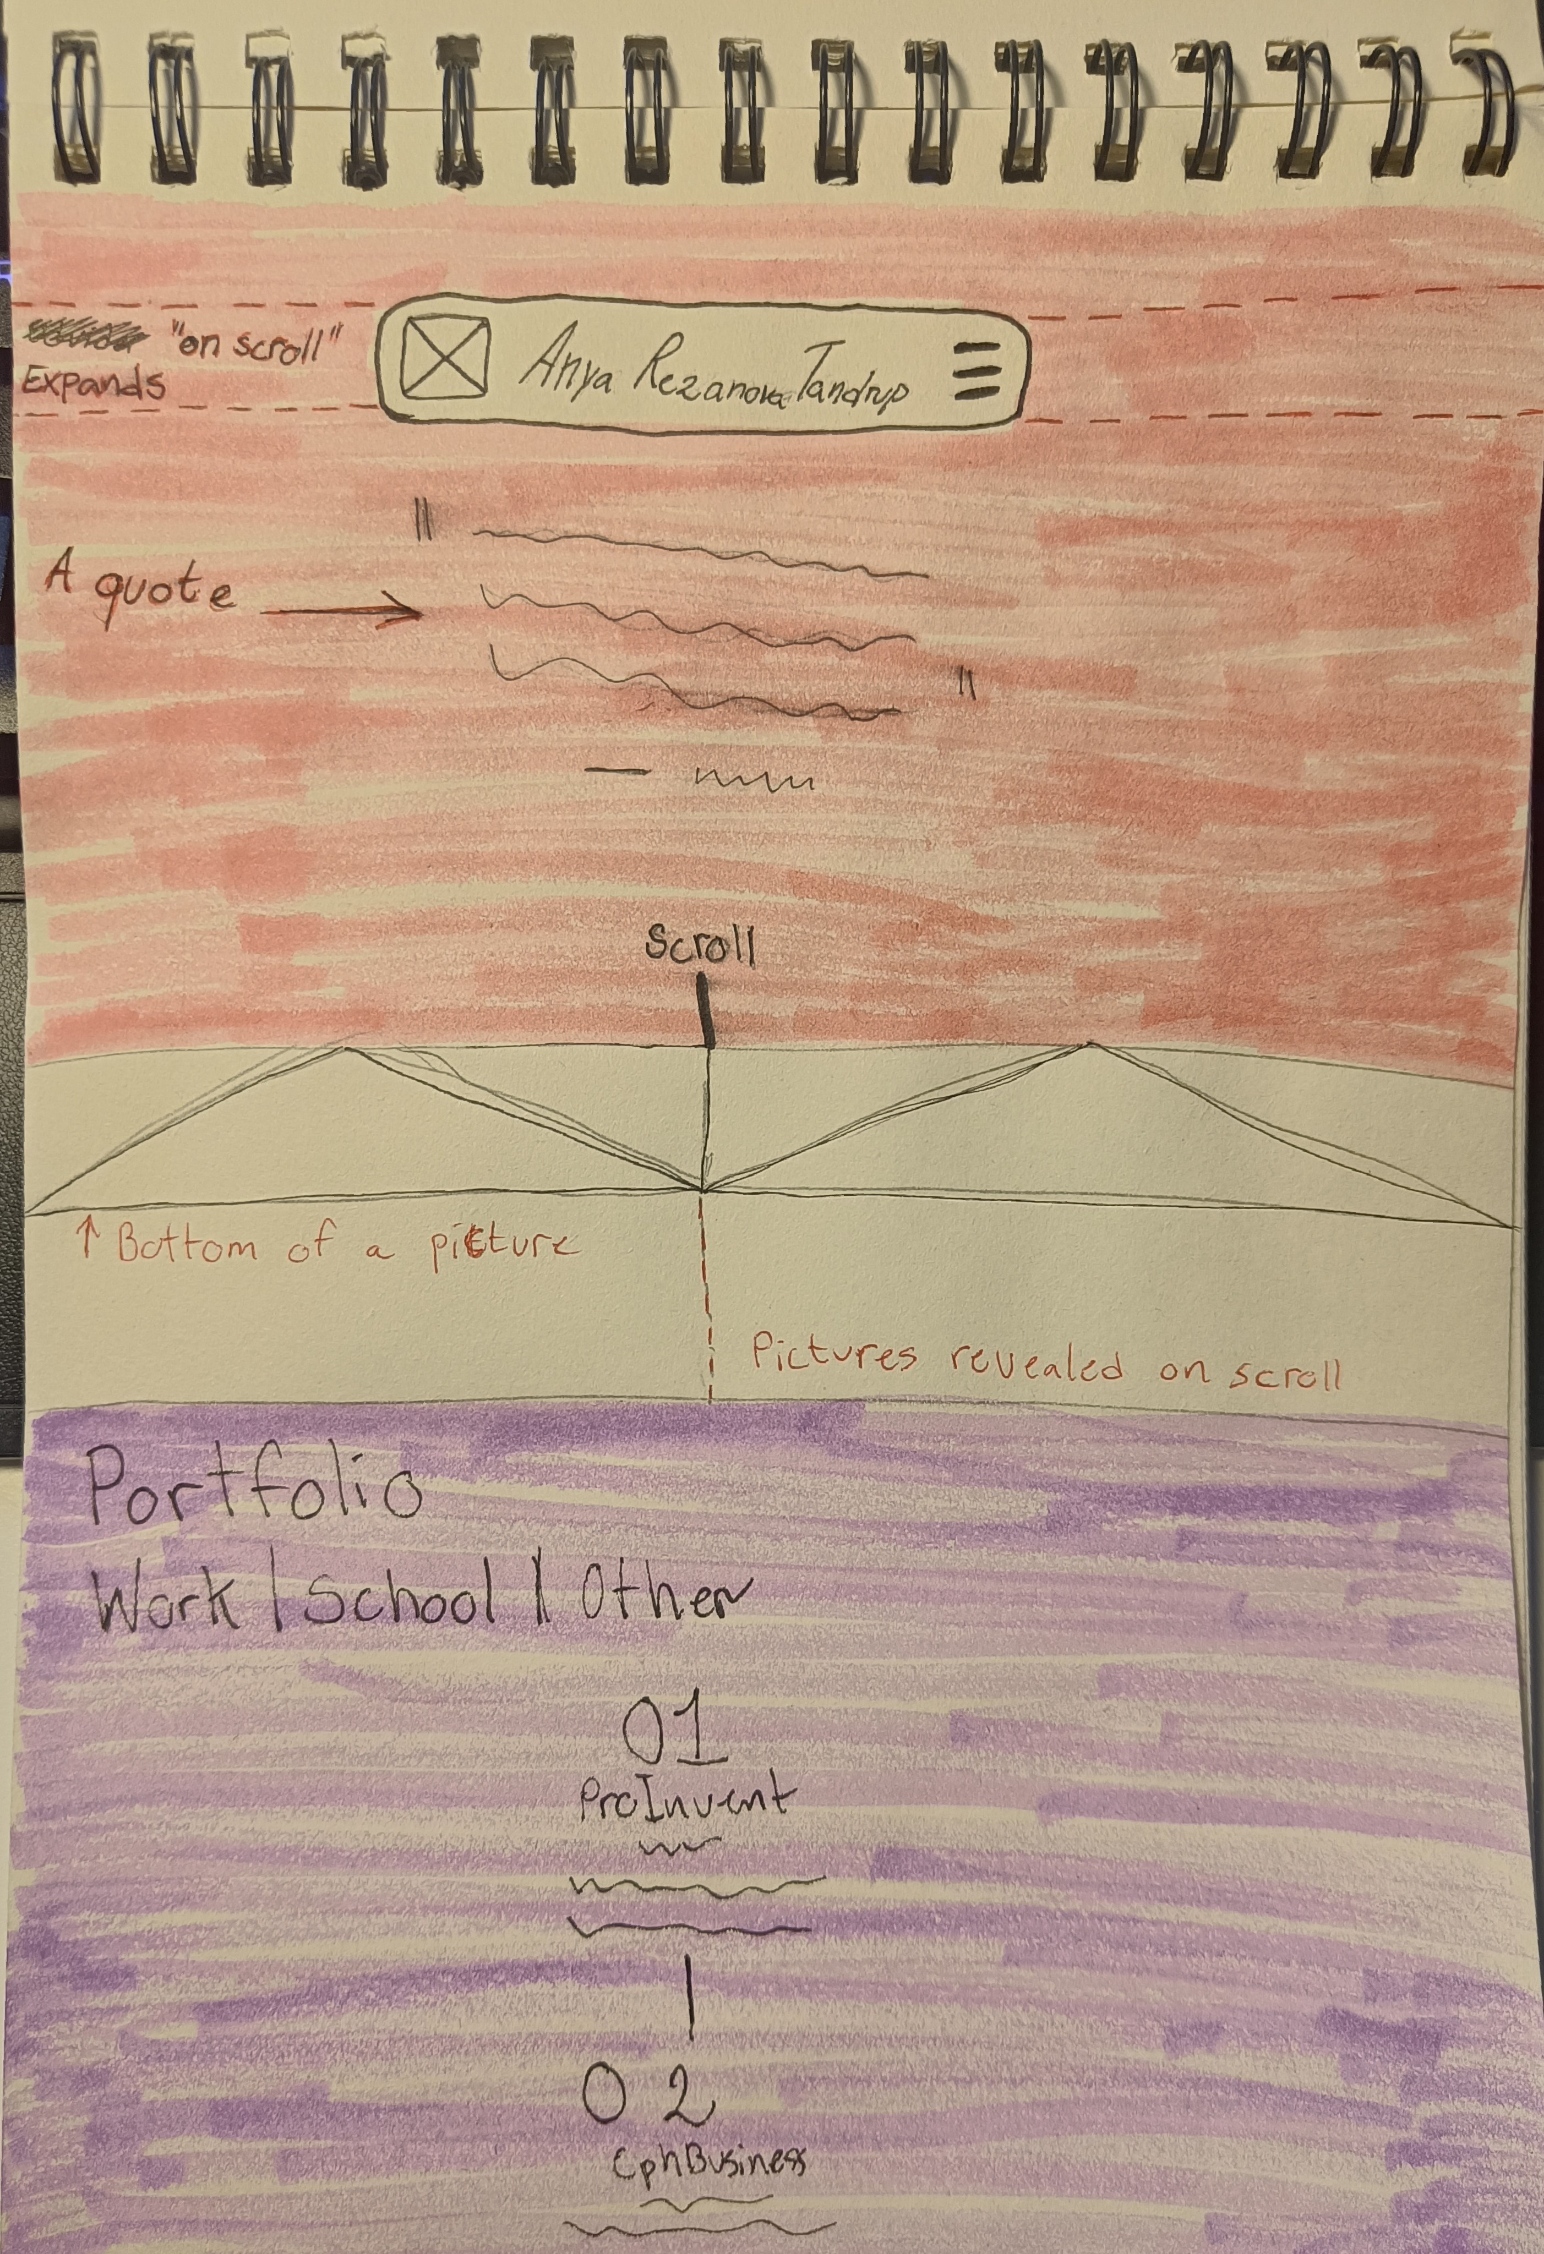 "on scroll"
Expands
Anya Rezanova Tandrup
A quote
"
"
Scroll
Bottom of a picture
Pictures revealed on scroll
Portfolio
Work | School | Other
01
ProInvent
02
CphBusiness